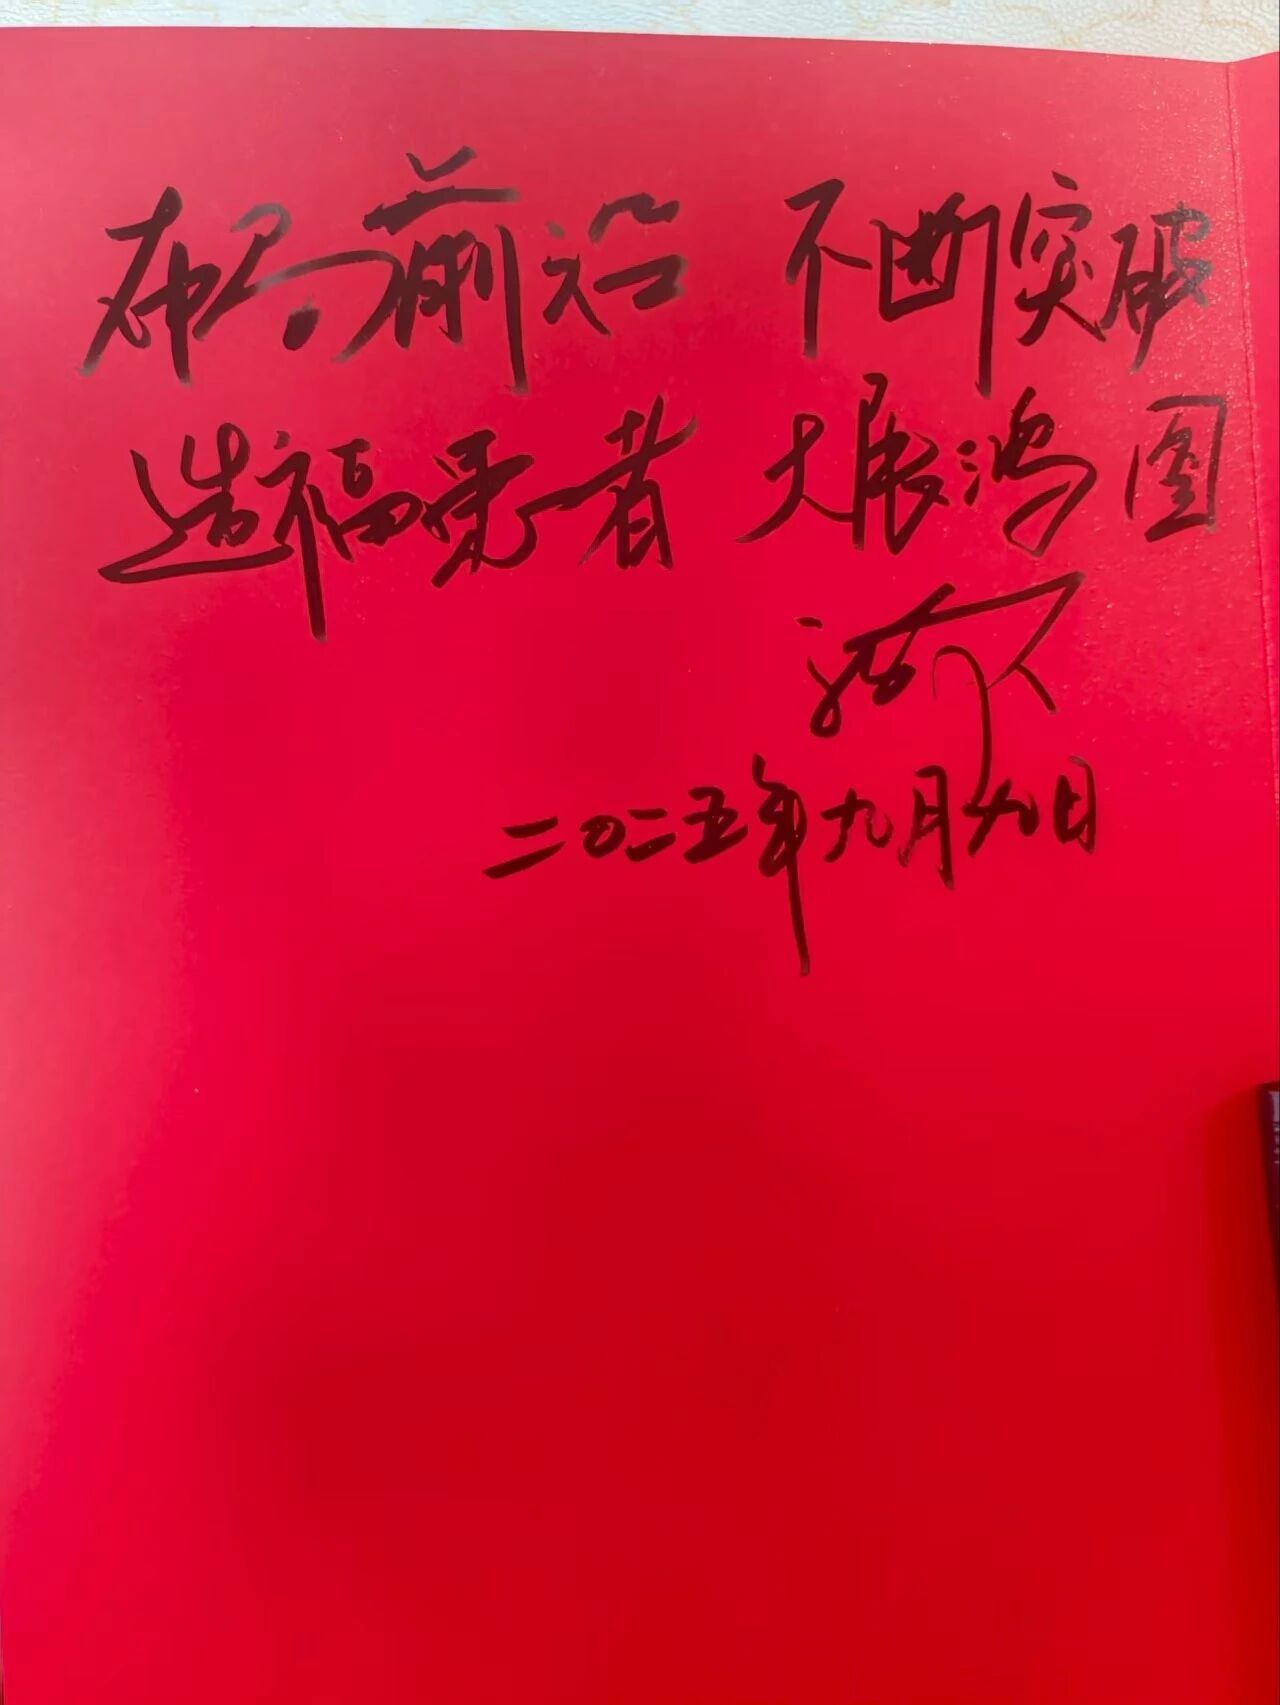 布局前沿 不断突破
造福患者 大展鸿图
二〇二五年九月九日